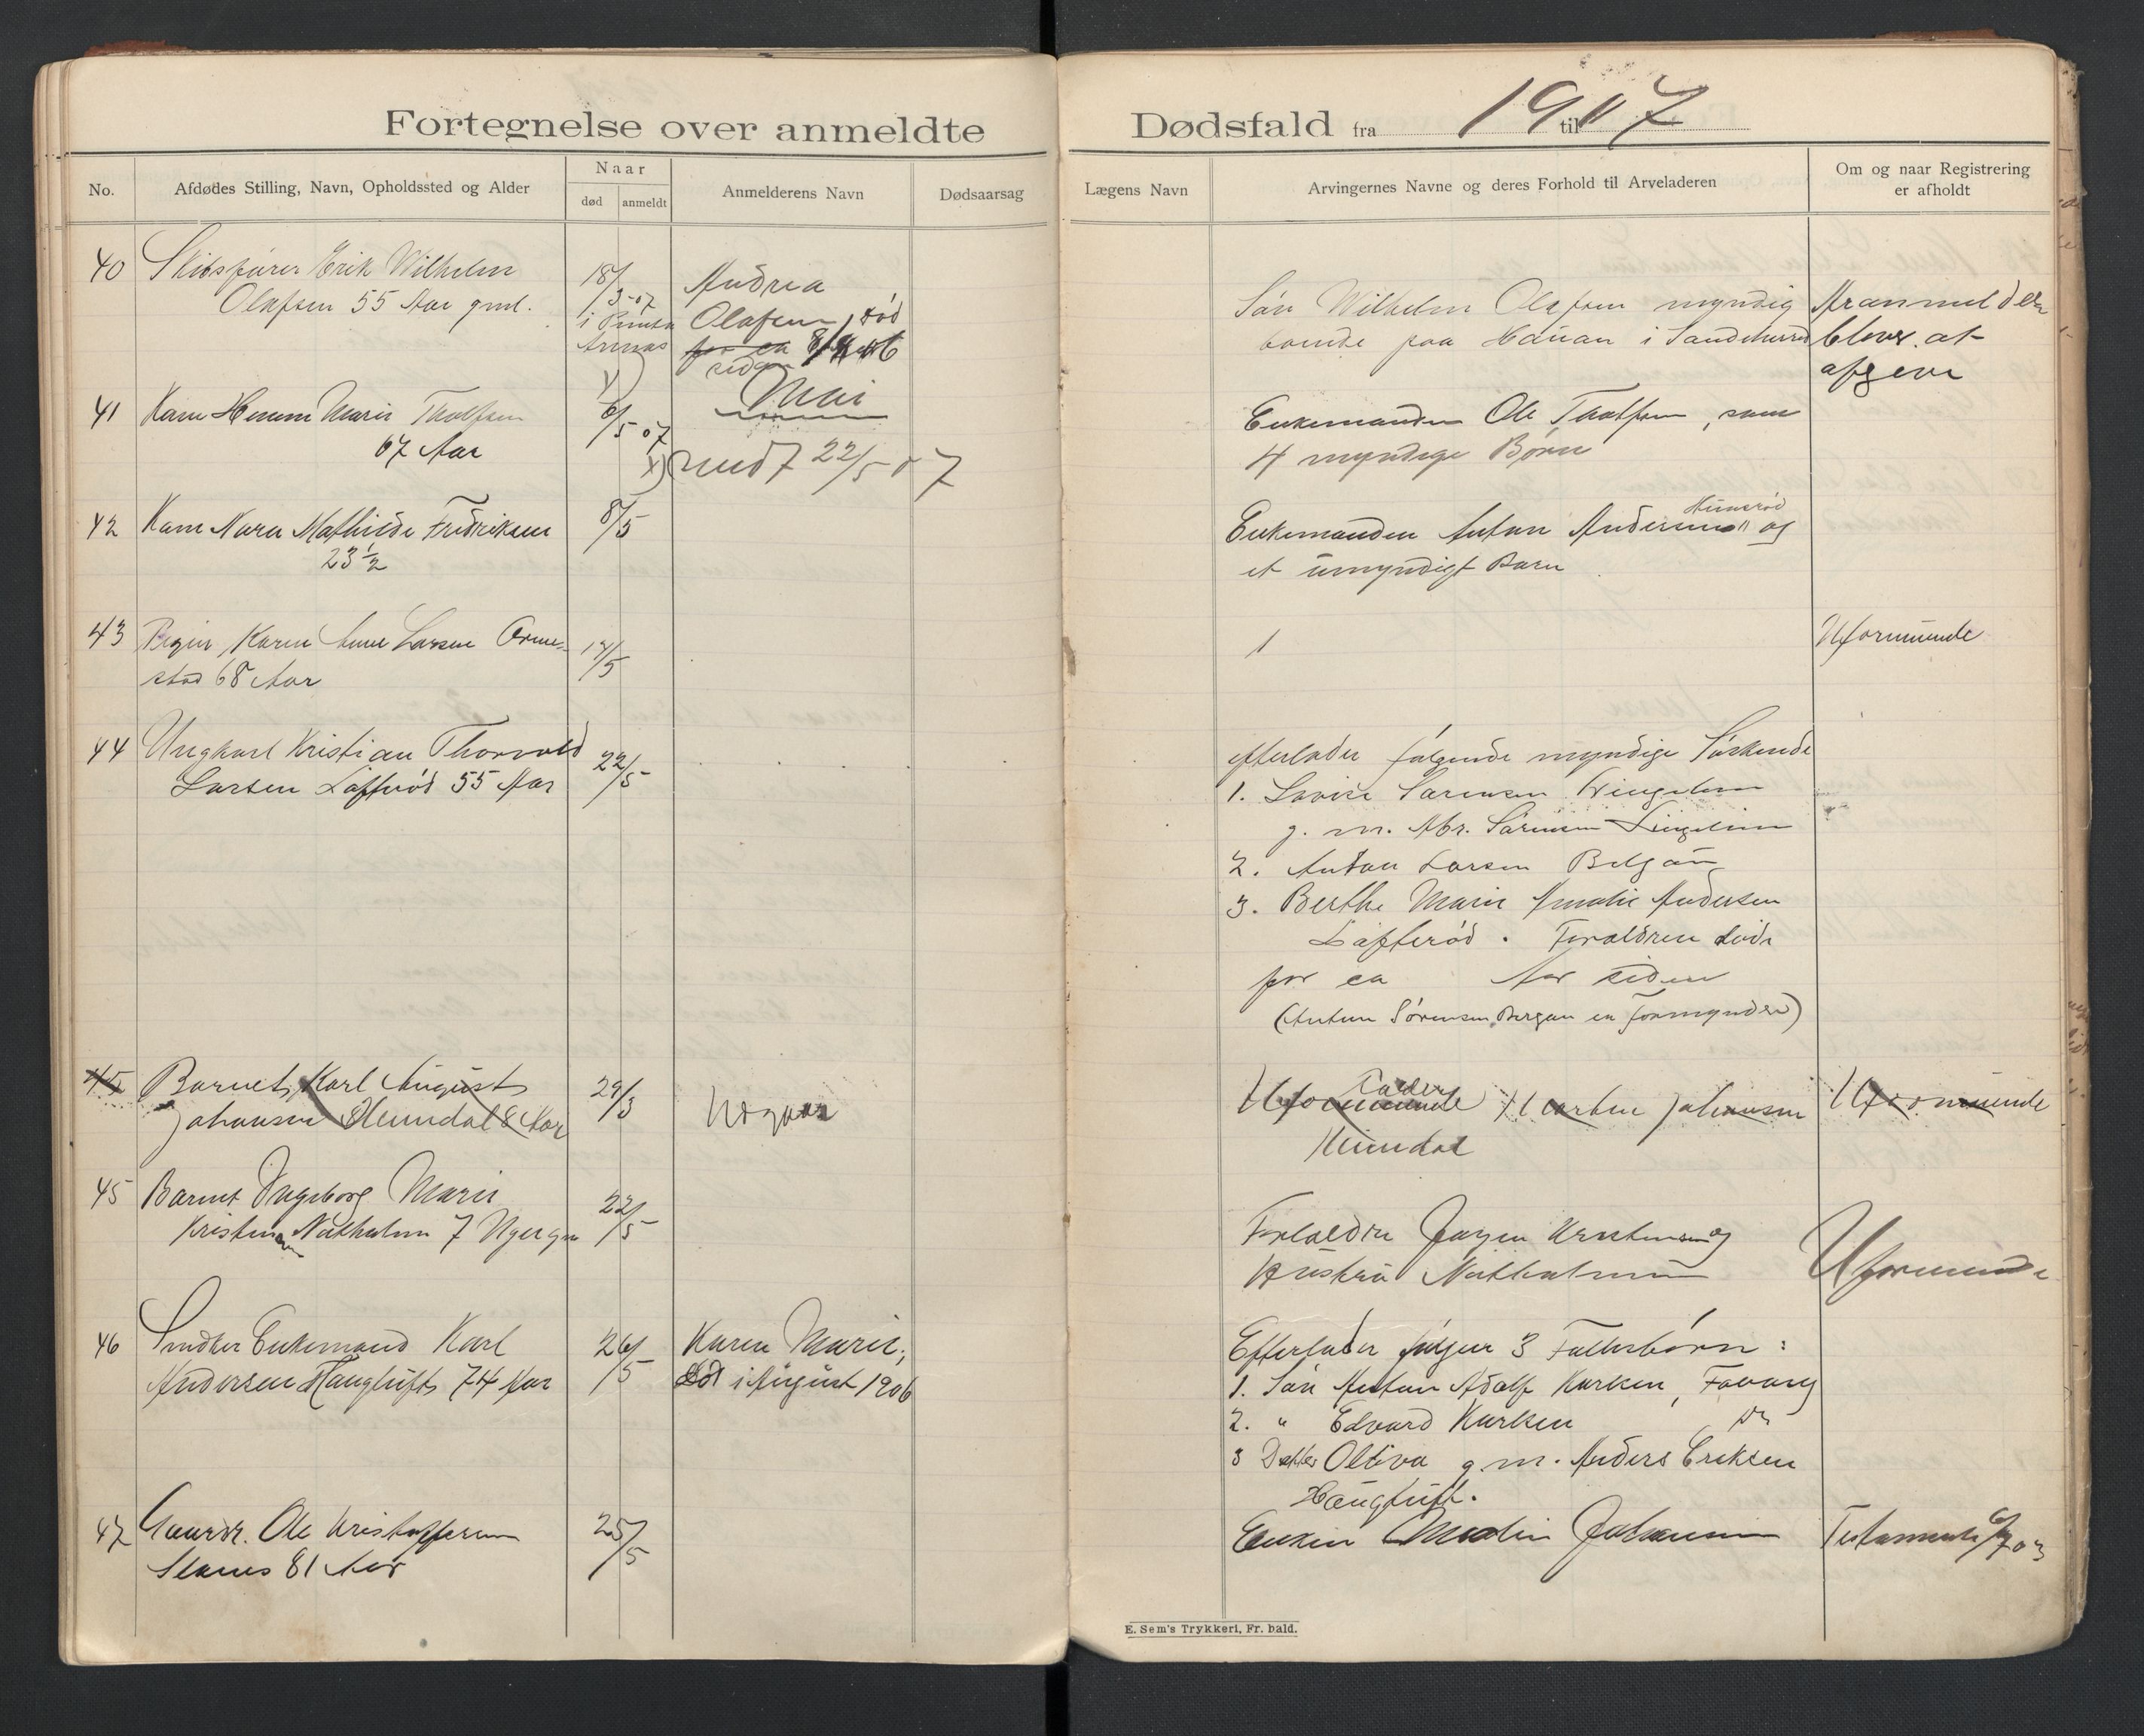 Fortegnelse over anmeldte
Dødsfald fra 19 til 07
No.
Afdødes Stilling, Navn, Opholdssted og Alder
Naar
død
anmeldt
Anmelderens Navn
Dødsaarsag
Lægens Navn
Arvingernes Navne og deres Forhold til Arveladeren
Om og naar Registrering
er afholdt
40
Skibsfører Erik Wilhelm
Olafsen 55 Aar gml.
18/3-07
i
Andrea
Olafsen, død
for ca
siden
Søn Wilhelm Olafsen myndig
boende paa Hauan i Sandeherred
blev at
afgive
Mai
41
Kone Marie Tholfsen
67 Aar
6/5 07
x) 22/5 07
Enkemanden Ole Tholfsen, samt
4 myndige Børn
42
Kone Nora Mathilde Fredriksen
23½
8/5
Enkemanden Anton Andersen og
et umyndigt Barn
43
Pigen Karen Anne Larsen Orme-
stad 68 Aar
17/5
1
Uformuende
44
Ungkarl Kristian Thorvald
Larsen Løfterød 55 Aar
22/5
efterlader følgende myndige Søskende
1. Lovise Sørensen
g. m. Abr. Sørensen
2. Anton Larsen
3. Berthe Marie Amalie Andersen
Løfterød. Forældren døde
for ca Aar siden
(Anton Sørensen Bergan er Formynder)
45
Barnet Karl August
Johansen Heimdal 8 Aar
29/3
Udgaar
Uformuende Fader Johansen
Heimdal
Uformuende
45
Barnet Ingeborg Marie
Kristensen Nøtholmen 7 Uger gm
22/5
Forældre Jørgen Kristensen og
Hustru Nøtholmen
Uformuende
46
Snedker Enkemand Karl
Andersen Haugtuft 74 Aar
26/5
Karen Marie,
død i August 1906
Efterlader følger 3 Fællesbørn:
1. Søn Anton Adolf Karlsen,
2. " Edvard Karlsen
3 Datter Oliva g. m. Anders Eriksen
Haugtuft.
47
Gaardr. Ole Kristoffersen
81 Aar
25/5
Enken Johansen
Testamente
E. Sem's Trykkeri, Fr. hald.